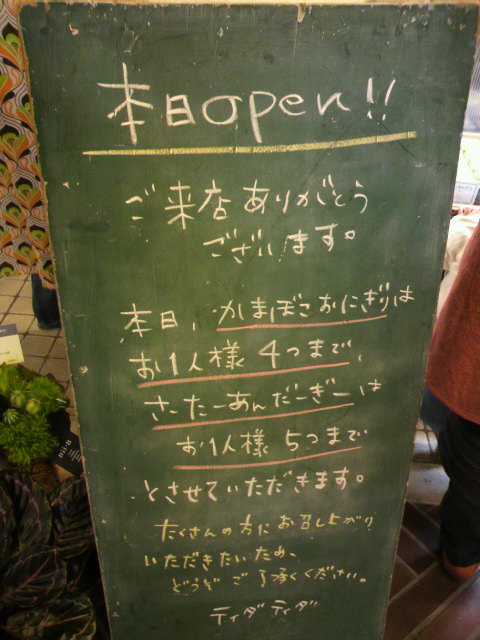 本日open!!
ご来店ありがとう
ございます。
本日、かまぼこおにぎりは
お1人様 4つまで、
さーたーあんだーぎーは
お1人様 5つまで
とさせていただきます。
たくさんの方にお召し上がり
いただきたいため、
どうぞ ご了承ください。
ティダティダ